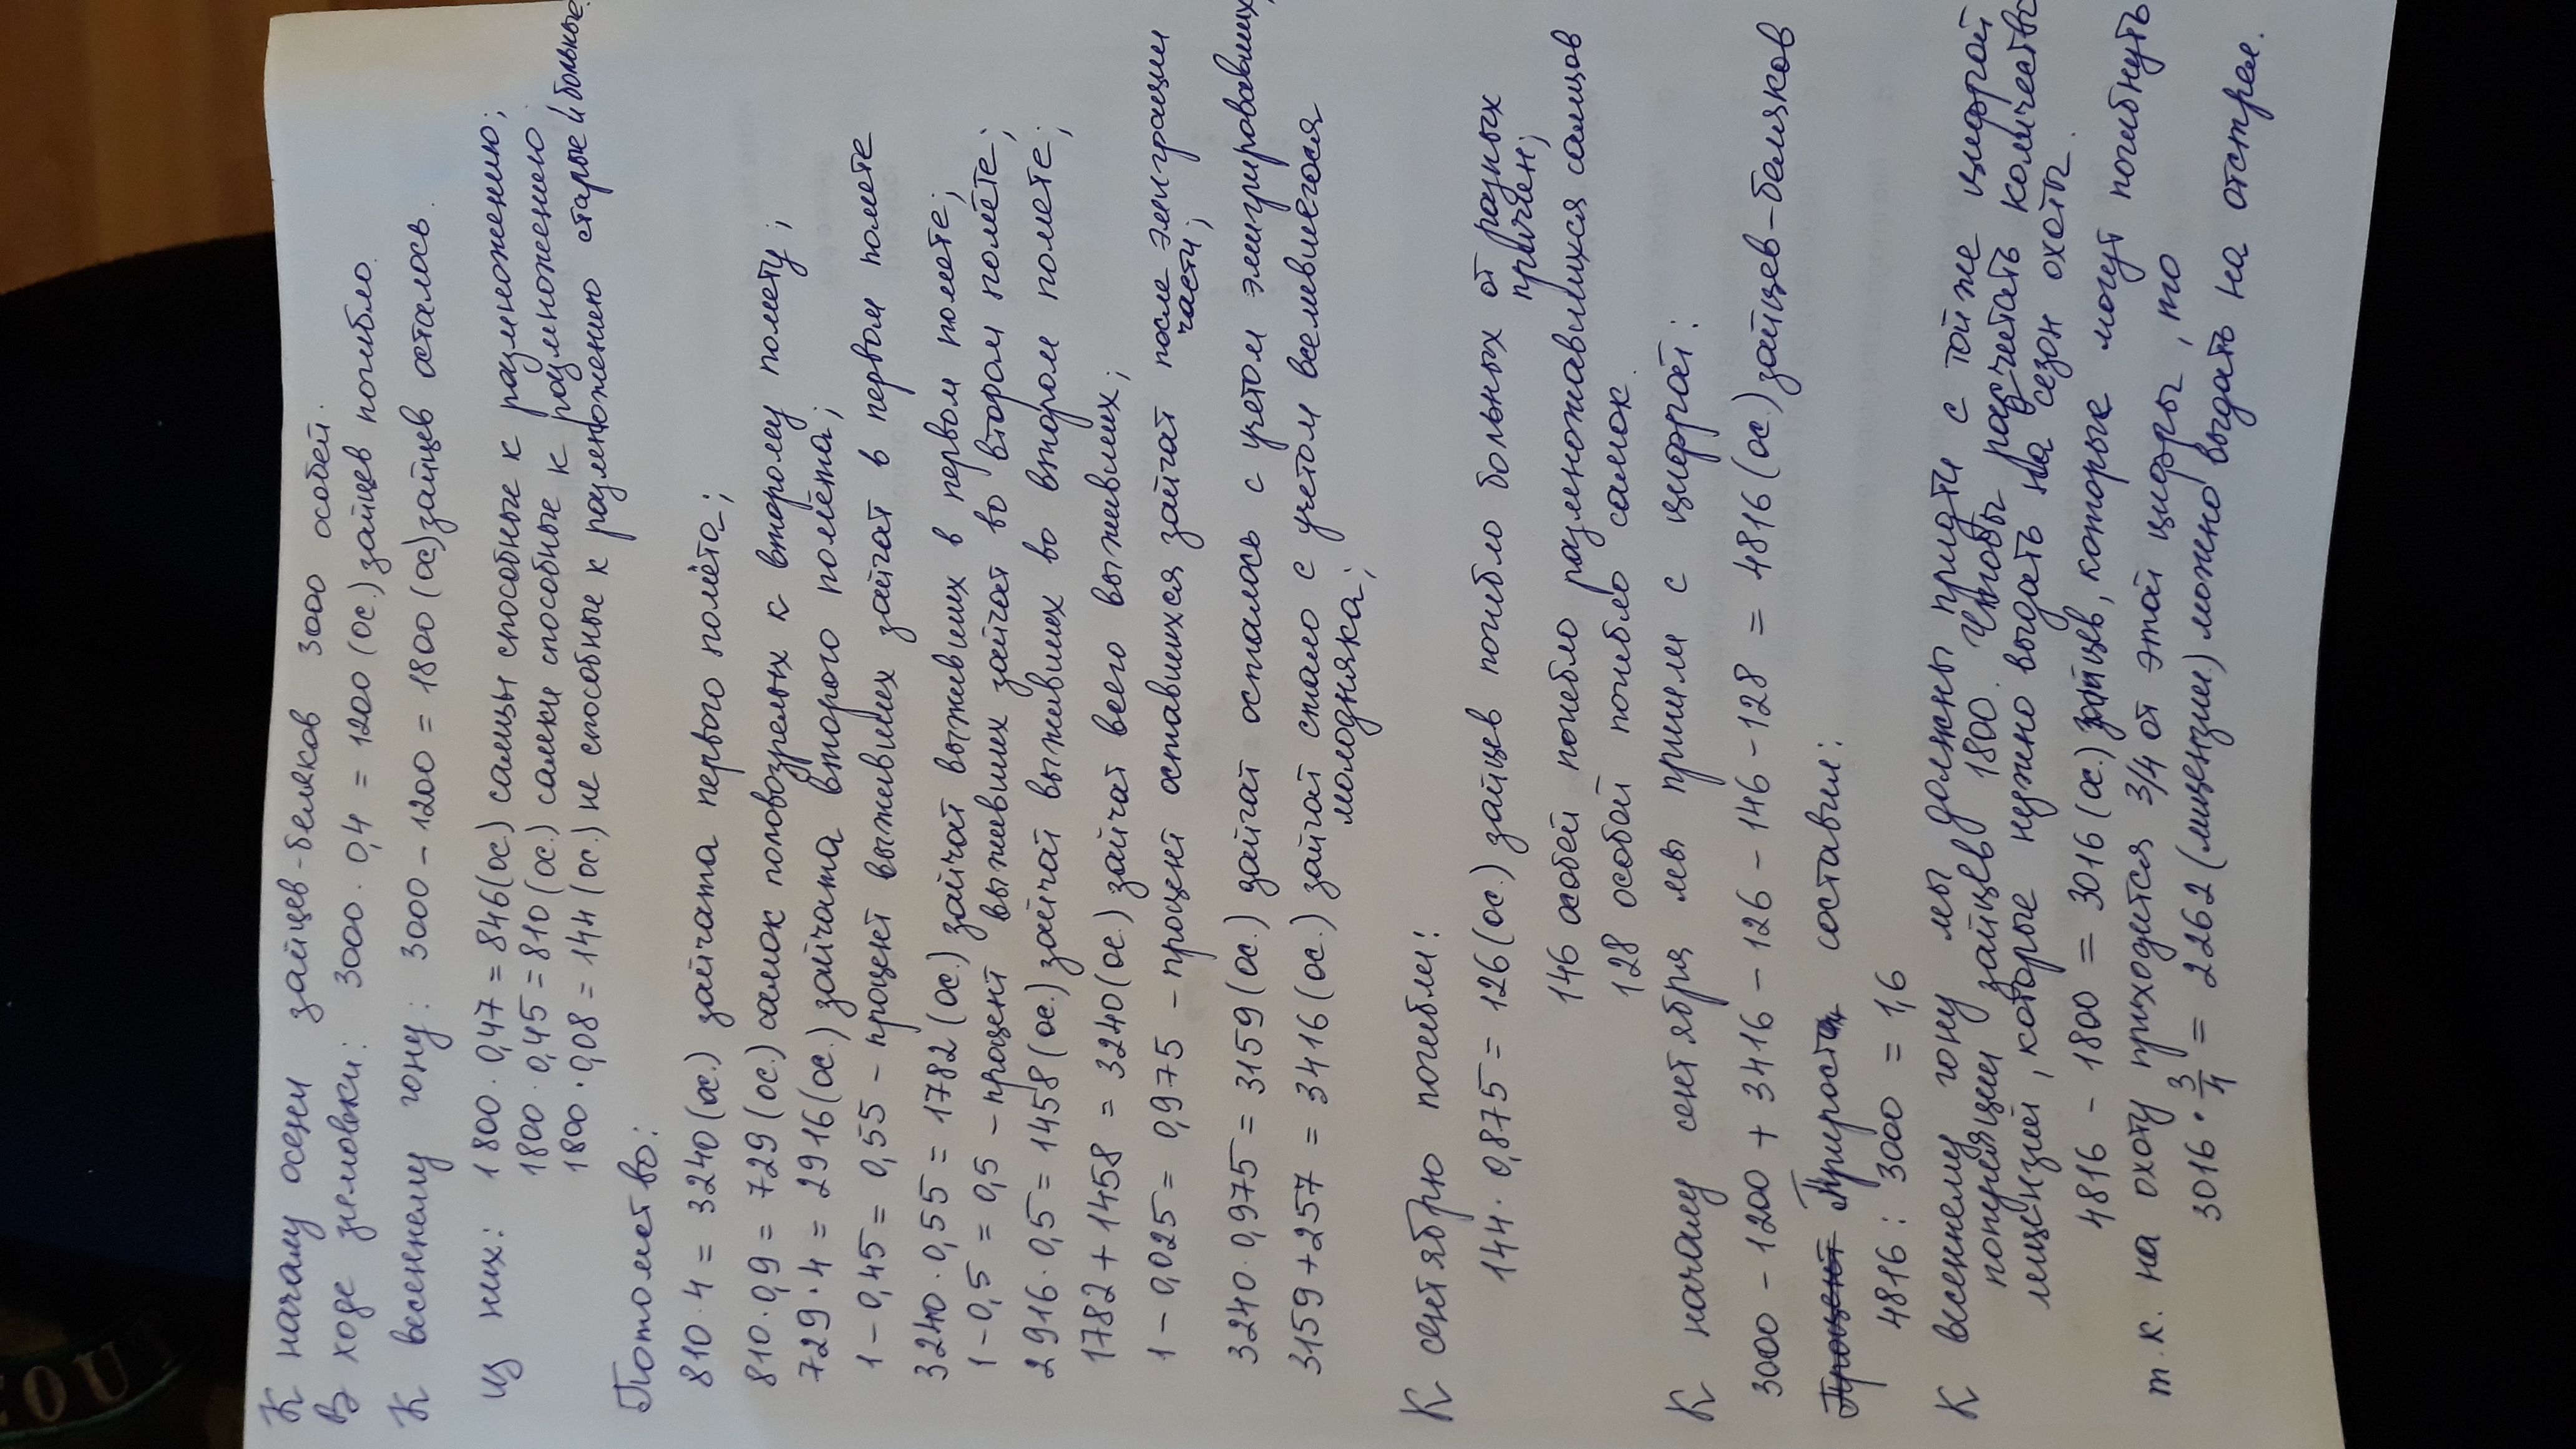 К началу осени зайцев-беляков 3000 особей.
В ходе зимовки: 3000 · 0,4 = 1200 (ос.) зайцев погибло.
К весеннему гону: 3000 - 1200 = 1800 (ос) зайцев осталось.
Из них: 1800 · 0,47 = 846 (ос.) самцы способные к размножению;
1800 · 0,45 = 810 (ос.) самки способные к размножению
1800 · 0,08 = 144 (ос.) не способные к размножению старые и больные.
Потомство:
810 · 4 = 3240 (ос.) зайчата первого помёта;
810 · 0,9 = 729 (ос.) самок половозрелых к второму помету;
729 · 4 = 2916 (ос.) зайчата второго помёта;
1 - 0,45 = 0,55 - процент выживших зайчат в первом помете
3240 · 0,55 = 1782 (ос.) зайчат выживших в первом помете;
1 - 0,5 = 0,5 - процент выживших зайчат во втором помёте;
2916 · 0,5 = 1458 (ос.) зайчат выживших во втором помете;
1782 + 1458 = 3240 (ос.) зайчат всего выживших;
1 - 0,025 = 0,975 - процент оставшихся зайчат после эмиграции части;
3240 · 0,975 = 3159 (ос.) зайчат осталось с учетом эмигрировавших;
3159 + 257 = 3416 (ос.) зайчат стало с учетом вселившегося
молодняка;
К сентябрю погибли:
144 · 0,875 = 126 (ос.) зайцев погибло больных от разных
причин;
146 особей погибло размножавшихся самцов
128 особей погибло самок.
К началу сентября мы пришли с цифрой:
3000 - 1200 + 3416 - 126 - 146 - 128 = 4816 (ос.) зайцев-беляков
Процент Прирост составил:
4816 : 3000 = 1,6
К весеннему гону мы должны придти с той же цифрой
популяции зайцев 1800. Чтобы расчетать количество
лицензий, которые нужно выдать на сезон охоты.
4816 - 1800 = 3016 (ос.) зайцев, которые могут погибнуть
т.к. на охоту приходится 3/4 от этой цифры, то
3016 · 3/4 = 2262 (лицензии) можно выдать на отстрел.